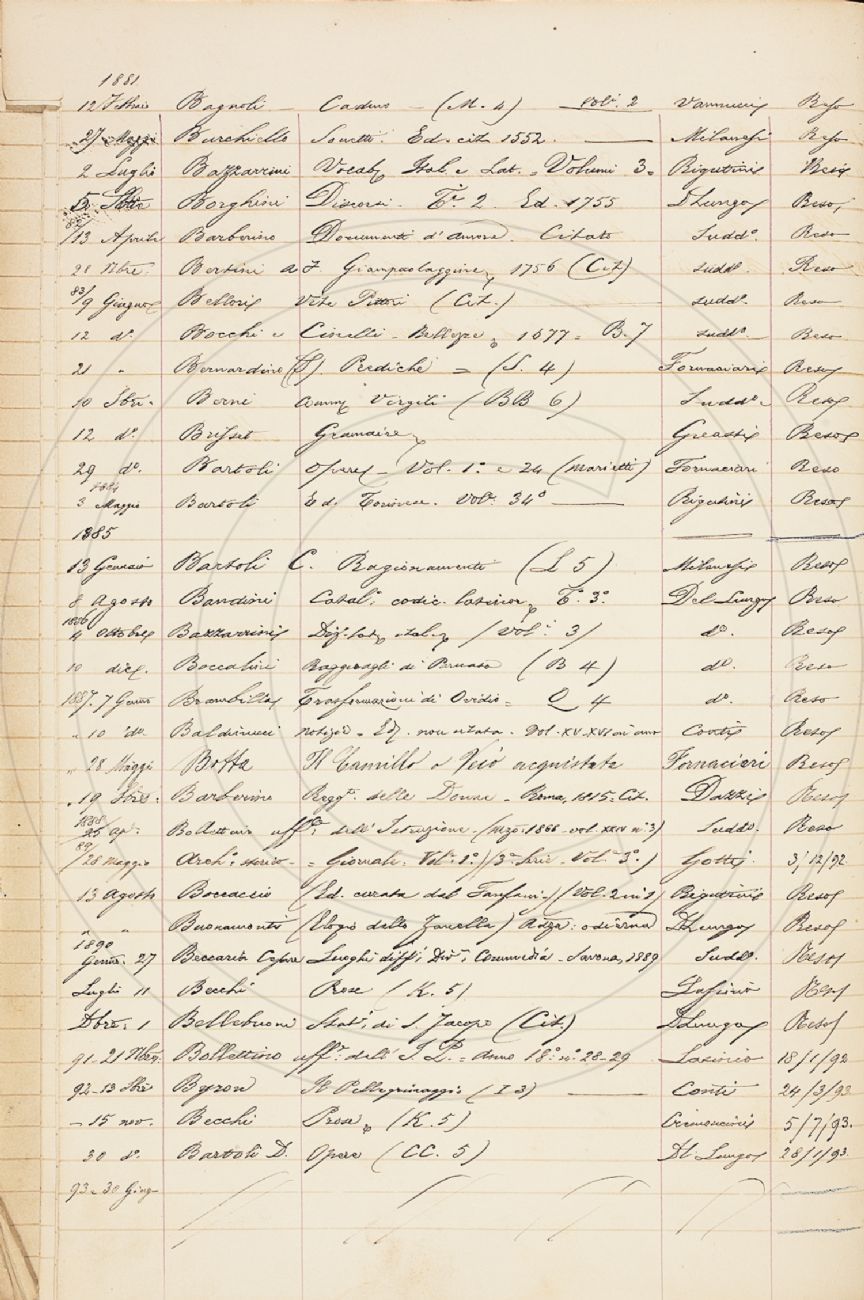 1881
12 Bagnoli Cadmo (M. 4) Vol. 2 Vannucci Reso
27 Maggio Burchiello Sonetti. Ed. cit. 1552. Milanesi Reso
2 Luglio Bazzarini Vocab. Ital. e Lat. Volumi 3. Rigutini Reso
5. Borghini Discorsi. T. 2. Ed. 1755 D Lungo Reso
13 Aprile Barberino Documenti d'amore. Citato Sudd°. Reso
28 Bertini 1756 (Cit) sudd°. Reso
83/9 Giugno Bellori Vite Pittori (Cit.) sudd°. Reso
12 d°. Bocchi e Cinelli - Bellezze 1677 = B. 7 sudd°. Reso
21 " Bernardino (S) Prediche = (S. 4) Fornaciari Reso
10 Berni Virgili (BB 6) Sudd°. Reso
12 d°. Grassi Reso
29 d°. Bartoli Opere - Vol. 1° e 24 (Marietti) Fornaciari Reso
1884
3 Maggio Bartoli Ed. Torinese. Vol. 34° Rigutini Reso
1885
13 Gennaio Bartoli C. Ragionamenti (L 5) Milanesi Reso
8 Agosto Bandini Catal. codic. latinor. T. 3°. Del Lungo Reso
1886
4 Ottobre Bazzarini lat. ital. (Vol. 3) d°. Reso
10 dic. Boccalini Ragguagli di Parnaso (B 4) d°. Reso
1887. 7 Genn° Brambilla Trasformazioni di Ovidio = Q 4 d°. Reso
" 10 d°. Baldinucci notizie. Ed. non citata. Vol. XV. XVI Conti Reso
" 28 Maggio Botta Il Camillo o Vejo acquistata Fornaciari Reso
" 19 Barberino Regg. delle Donne - Roma, 1815. Cit. Dazzi Reso
1888
25 ap. Bollettino uff. dell'Istruzione. 1866 - vol. XXIV n° 3) Sudd°. Reso
89/28 Maggio Arch. storico - = Giornale: Vol. 1°.)(3ª Serie - Vol. 3°.) Gotti 3/12/92
13 Agosto Boccaccio (Ed. curata dal Fanfani) (Vol. 2 Rigutini Reso
" " Buonamonti (Elogio dello Zanella) D Lungo Reso
1890
Genn. 27 Beccaria Cesare Luoghi diff. Div. Commedia - Savona, 1889 Sudd°. Reso
Luglio 11 Becchi Prose (K. 5) Lasinio Reso
Dbre. 1 Bellebuoni Stat. di S. Jacopo (Cit.) D Lungo Reso
91 - 21 Bollettino uff. dell' I. P. = Anno 18° n°. 28-29 Lasinio 18/1/92
92 - 13 Byron Il Pellegrinaggio (I 3) Conti 24/3/93
- 15 nov. Becchi Prose (K. 5) 5/7/93.
30 d°. Bartoli D. Opere (CC. 5) D. Lungo 28/1/93.
93 - 30 Giug.